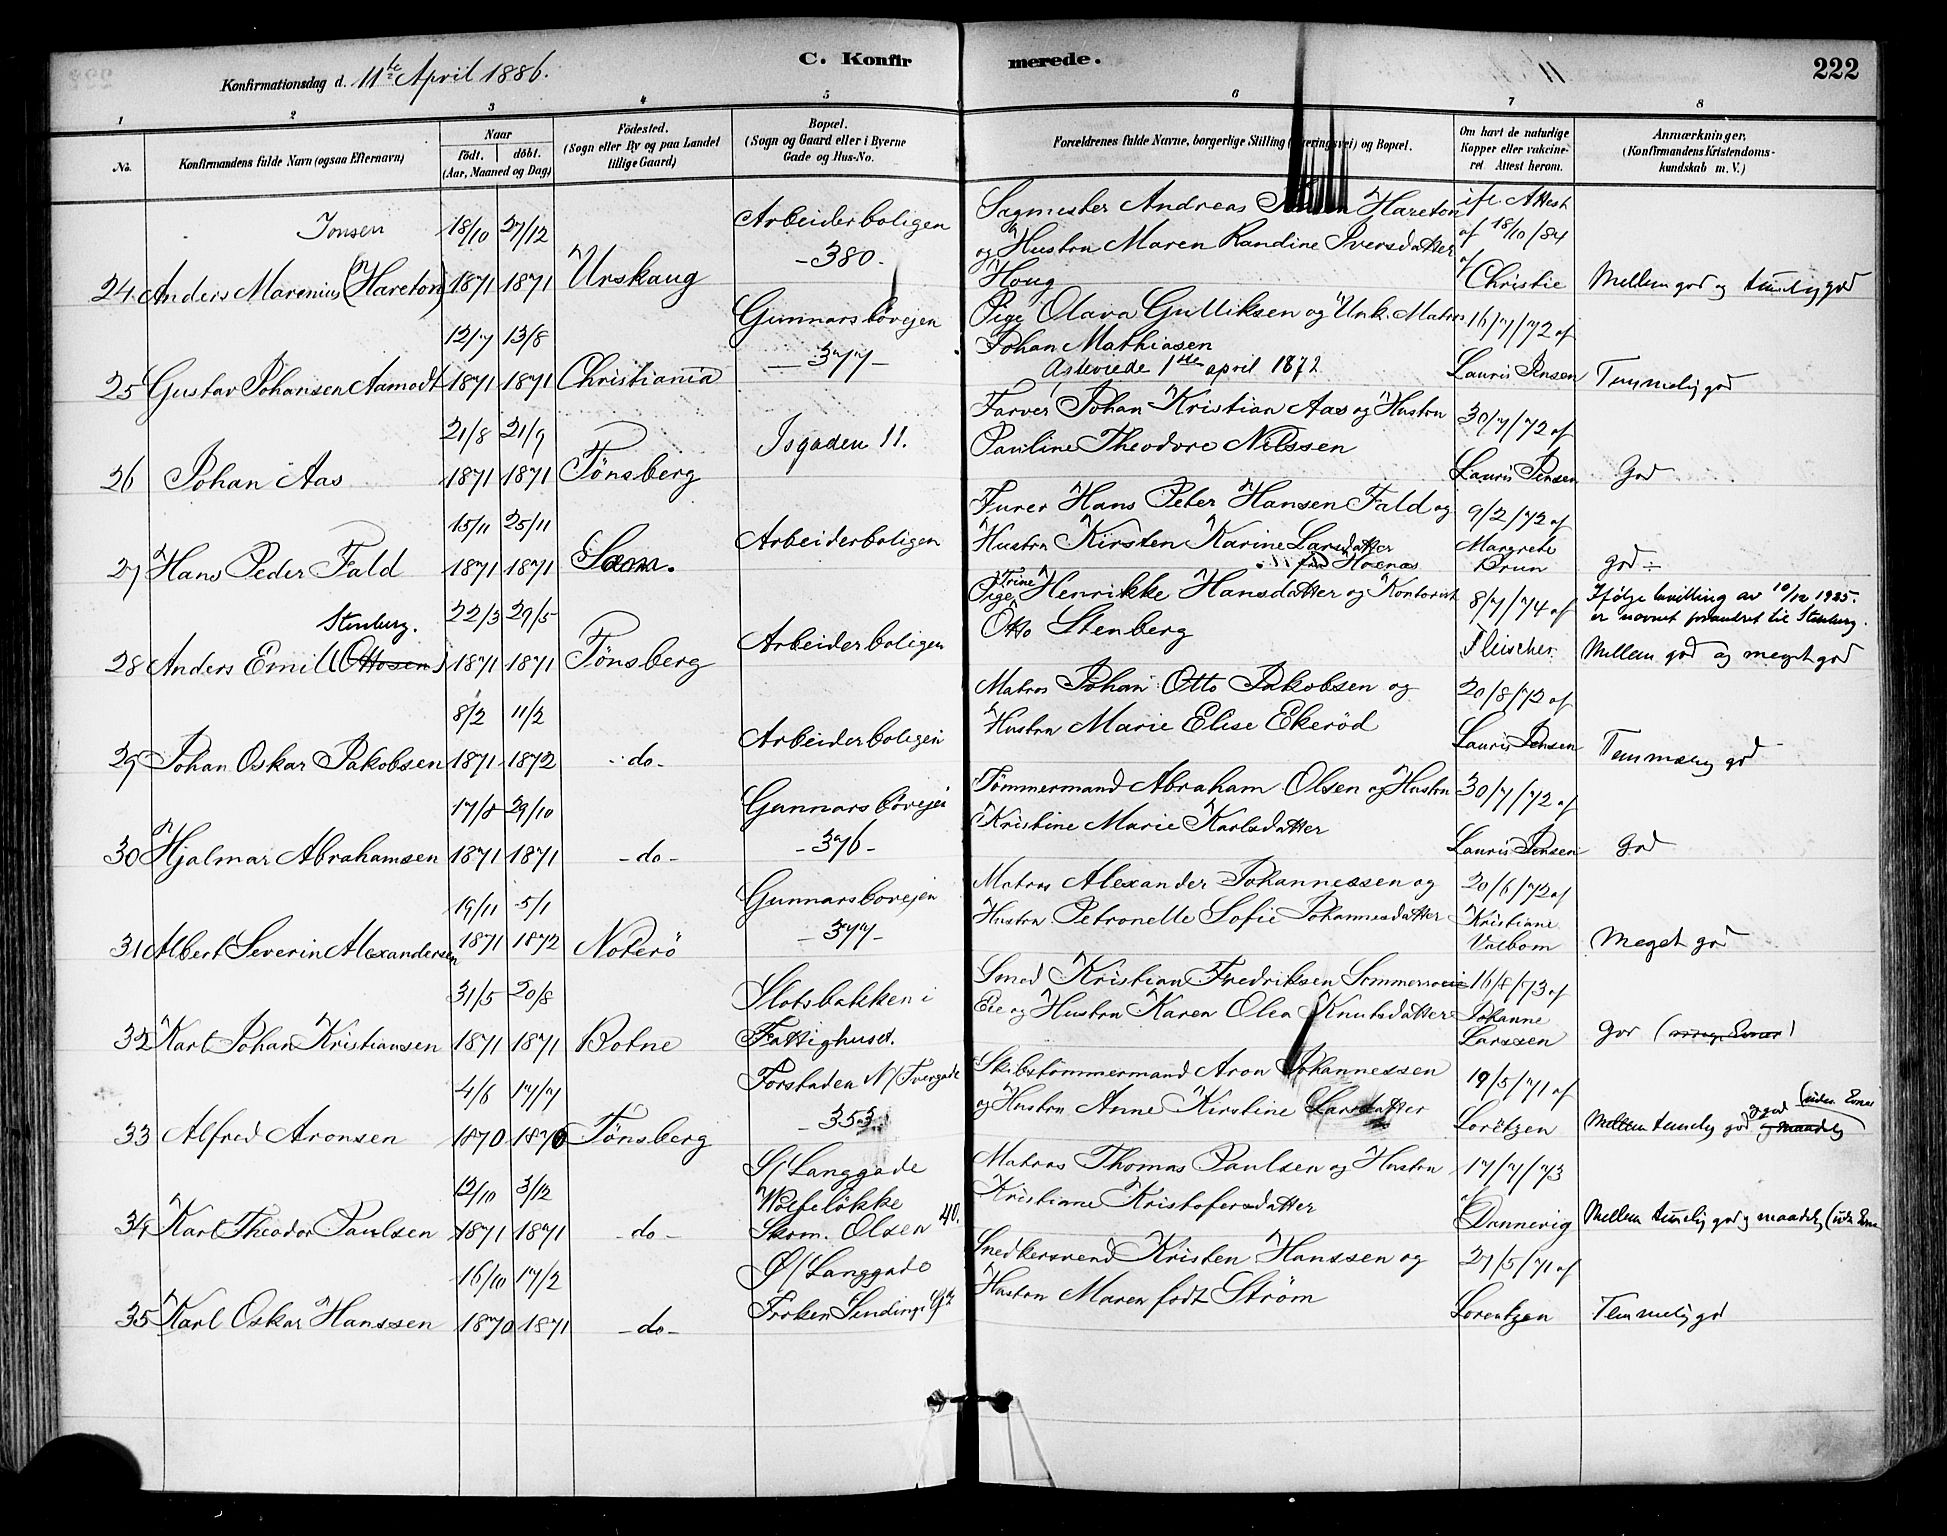 Konfirmationsdag d. 11te April 1886.
C. Konfirmerede.
11
222
1 2 3 4 5 6 7 8
No.
Konfirmandens fulde Navn (ogsaa Efternavn)
Naar
født. døbt.
(Aar, Maaned og Dag)
Fødested.
(Sogn eller By og paa Landet
tillige Gaard)
Bopæl.
(Sogn og Gaard eller i Byerne
Gade og Hus-No.
Forældrenes fulde Navne, borgerlige Stilling (Næringsvei) og Bopæl.
Om havt de naturlige
Kopper eller vakcine-
ret. Attest herom.
Anmærkninger.
(Konfirmandens Kristendoms-
kundskab m. V.)
24 Anders Marenius (Hareton) Jonsen
18/10 1871 27/12 1871
Urskaug
Arbeiderboligen
- 380 -
Sagmester Andreas Hareton
og Hustru Maren Randine Iversdatter
Houg
ifl. Attest
af 18/10/84
af
Christie
Mellem god og temelig god
25 Gustav Johansen Aamodt
12/7 1871 13/8 1871
Christiania
Gunnarsbøvejen
- 377 -
Pige Olava Gulliksen og Unk. Matros
Johan Mathiasen
Ægteviede 1ste april 1872
16/7/72 af
Lauris Jensen
Temmelig god
26 Johan Aas
21/8 1871 21/9 1871
Tønsberg
Isgaden 11.
Farver Johan Kristian Aas og Hustru
Pauline Theodore Nilssen
30/7/72 af
Lauris Jensen
God
27 Hans Peder Fald
15/11 1871 25/11 1871
Sæm.
Arbeiderboligen
Furer Hans Peter Hansen Fald og
Hustru Kirsten Karine Larsdatter
fra Hosnæs
9/2/72 af
Margrete
Brun
god ÷
28 Anders Emil (Ottosen) Stenberg.
22/3 1871 29/5 1871
Tønsberg
Arbeiderboligen
Pige Trine Henrikke Hansdatter og Kontorist
Otto Stenberg
8/7/74 af
Fleischer
Ifølge bevilling av 10/12 1925.
er navnet forandret til Stenberg.
Mellem god og meget god
29 Johan Oskar Jakobsen
8/2 1871 11/2 1872
- do -
Arbeiderboligen
Matros Johan Otto Jakobsen og
Hustru Marie Elise Ekerød
20/8/72 af
Lauris Jensen
Temmelig god
30 Hjalmar Abrahamsen
17/8 1871 29/10 1871
- do -
Gunnarsbøvejen
- 376 -
Tømmermand Abraham Olsen og Hustru
Kristine Marie Karlsdatter
30/7/72 af
Lauris Jensen
god
31 Albert Severin Alexandersen
19/11 1871 5/1 1872
Noterø
Gunnarsbovejen
- 377 -
Matros Alexander Johannessen og
Hustru Petronelle Sofie Johannesdatter
20/6/72 af
Kristiane
Valbom
Meget god
32 Karl Johan Kristiansen
31/5 1871 20/8 1871
Botne
Slotsbakken i
Fattighuset.
Smed Kristian Fredriksen Sommerroen
Eie og Hustru Karen Olea Knutsdatter
16/8/73 af
Johanne
Larssen
god
33 Alfred Aronsen
4/6 1870 17/7 1870
Tønsberg
Forstaden N/ Tvergade
- 353
Skibstømmermand Aron Johannessen
og Hustru Anne Kirstine Larsdatter
19/5/71 af
Lorêtzen
Mellem temelig god og god (uden Evner
og maadelig
34 Karl Theodor Paulsen
12/10 1871 3/12 1871
- do -
S/ Langgade
Wolfeløkke
Skom. Olsen 40.
Matros Thomas Paulsen og Hustru
Kristiane Kristofersdatter
17/7/73
af
Dannevig
Mellem temelig god og maadelig (uden Evne
35 Karl Oskar Hanssen
16/10 1870 17/2 1871
- do -
Ø/ Langgade
Frøken Sendings
Snedkersvend Kristen Hanssen og
Hustru Maren født Strøm
27/5/71 af
Lorentzen
Temmelig god